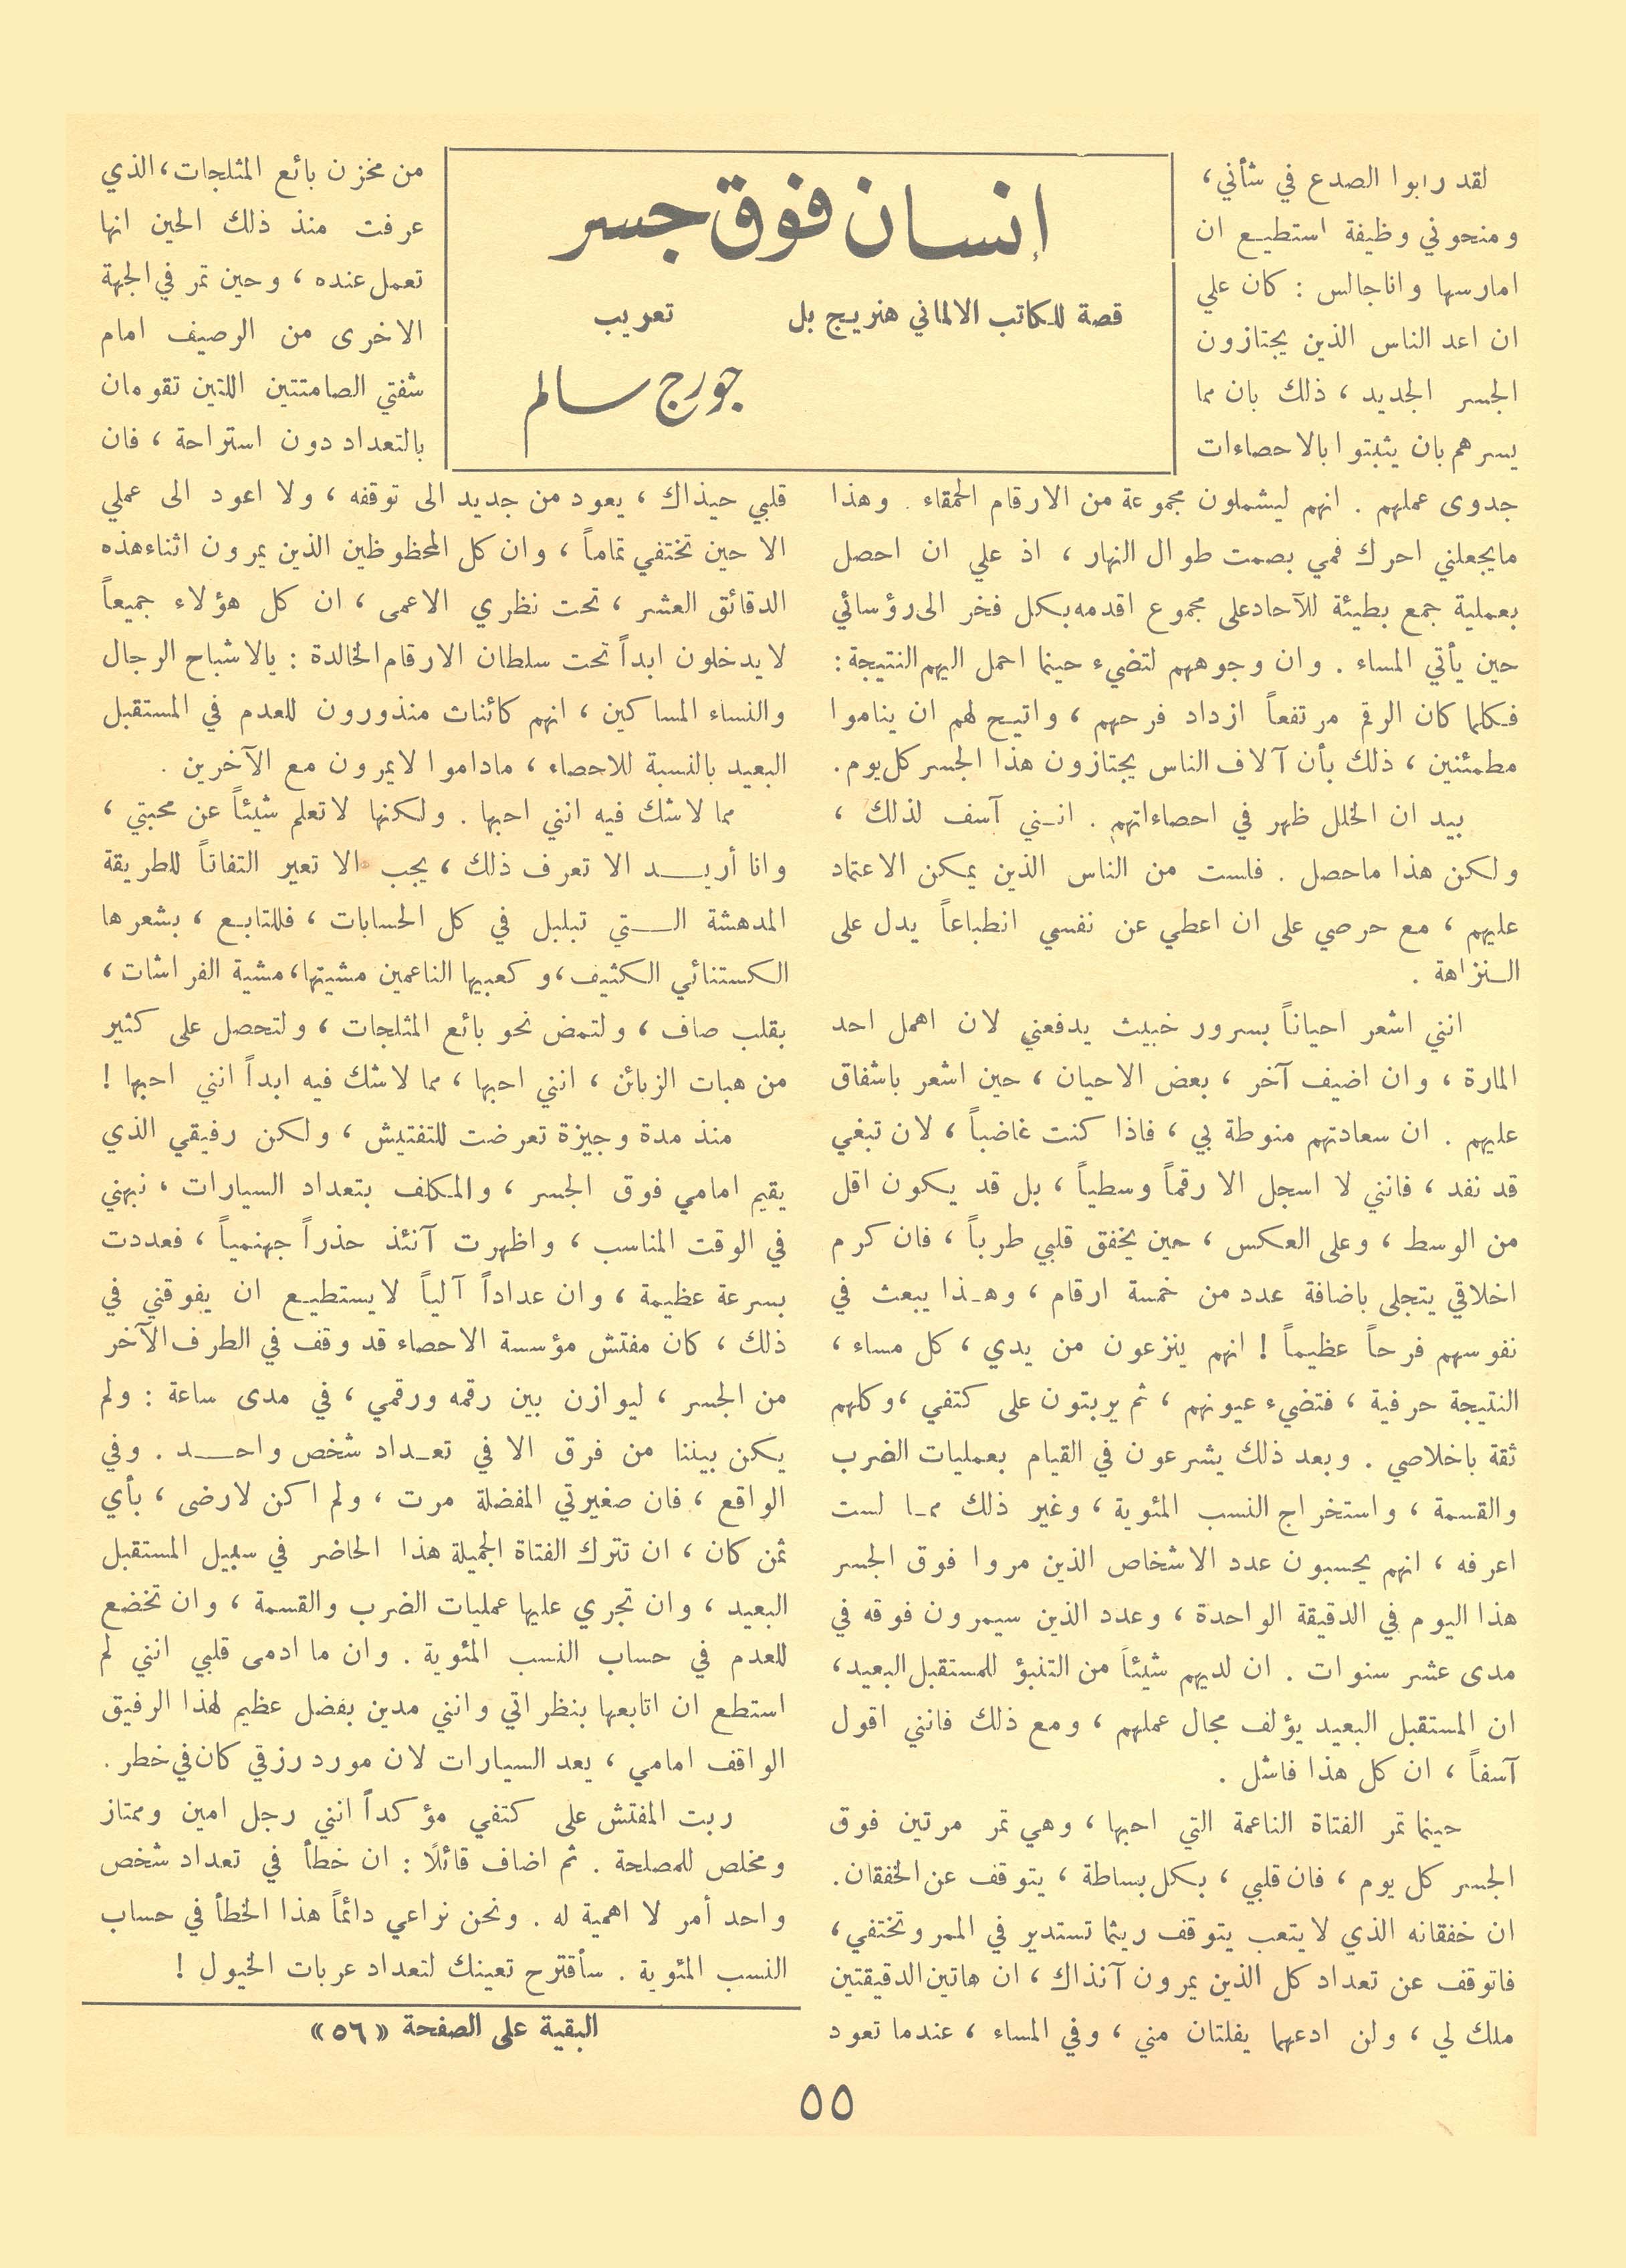 إنسان فوق جسر
قصة للكاتب الالماني هنريج بل
تعريب
جورج سالم
لقد رابوا الصدع في شأني،
ومنحوني وظيفة استطيع ان
امارسها واناجالس : كان علي
ان اعد الناس الذين يجتازون
الجسر الجديد ، ذلك بان مما
يسرهم بان يثبتوا بالاحصاءات
جدوى عملهم . انهم ليشملون مجموعة من الارقام الحمقاء . وهذا
مايجعلني احرك فمي بصمت طوال النهار ، اذ علي ان احصل
بعملية جمع بطيئة للآحادعلى مجموع اقدمه بكل فخر الى رؤسائي
حين يأتي المساء . وان وجوههم لتضيء حينما احمل اليهم النتيجة :
فكلما كان الرقم مرتفعاً ازداد فرحهم ، واتيح لهم ان يناموا
مطمئنين ، ذلك بأن آلاف الناس يجتازون هذا الجسر كل يوم .
بيد ان الخلل ظهر في احصاءاتهم . انني آسف لذلك ،
ولكن هذا ماحصل . فلست من الناس الذين يمكن الاعتماد
عليهم ، مع حرصي على ان اعطي عن نفسي انطباعاً يدل على
النزاهة .
انني اشعر احياناً بسرور خبيث يدفعني لان اهمل احد
المارة ، وان اضيف آخر ، بعض الاحيان ، حين اشعر باشفاق
عليهم . ان سعادتهم منوطة بي ، فاذا كنت غاضباً ، لان تبغي
قد نفد ، فانني لا اسجل الا رقماً وسطياً ، بل قد يكون اقل
من الوسط ، وعلى العكس ، حين يخفق قلبي طرباً ، فان كرم
اخلاقي يتجلى باضافة عدد من خمسة ارقام ، وهذا يبعث في
نفوسهم فرحاً عظيماً ! انهم ينزعون من يدي ، كل مساء ،
النتيجة حرفية ، فتضيء عيونهم ، ثم يربتون على كتفي ، وكلهم
ثقة باخلاصي . وبعد ذلك يشرعون في القيام بعمليات الضرب
والقسمة ، واستخراج النسب المئوية ، وغير ذلك مما لست
اعرفه ، انهم يحسبون عدد الاشخاص الذين مروا فوق الجسر
هذا اليوم في الدقيقة الواحدة ، وعدد الذين سيمرون فوقه في
مدى عشر سنوات . ان لديهم شيئاً من التنبؤ للمستقبل البعيد ،
ان المستقبل البعيد يؤلف مجال عملهم ، ومع ذلك فانني اقول
آسفاً ، ان كل هذا فاشل .
حينما تمر الفتاة الناعمة التي احبها ، وهي تمر مرتين فوق
الجسر كل يوم ، فان قلبي ، بكل بساطة ، يتوقف عن الخفقان .
ان خفقانه الذي لايتعب يتوقف ريثما تستدير في الممر وتختفي ،
فاتوقف عن تعداد كل الذين يمرون آنذاك ، ان هاتين الدقيقتين
ملك لي ، ولن ادعهما يفلتان مني ، وفي المساء ، عندما تعود
من مخزن بائع المثلجات ، الذي
عرفت منذ ذلك الحين انها
تعمل عنده ، وحين تمر في الجهة
الاخرى من الرصيف امام
شفتي الصامتتين اللتين تقومان
بالتعداد دون استراحة ، فان
قلبي حيذاك ، يعود من جديد الى توقفه ، ولا اعود الى عملي
الا حين تختفي تماماً ، وان كل المحظوظين الذين يمرون اثناءهذه
الدقائق العشر ، تحت نظري الاعمى ، ان كل هؤلاء جميعاً
لايدخلون ابداً تحت سلطان الارقام الخالدة : يالاشباح الرجال
والنساء المساكين ، انهم كائنات منذورون للعدم في المستقبل
البعيد بالنسبة للاحصاء ، ماداموا لايمرون مع الآخرين .
مما لاشك فيه انني احبها . ولكنها لاتعلم شيئاً عن محبتي ،
وانا أريد الا تعرف ذلك ، يجب الا تعير التفاتاً للطريقة
المدهشة التي تبلبل في كل الحسابات ، فلتتابع ، بشعرها
الكستنائي الكثيف ، وكعبيها الناعمين مشيتها ، مشية الفراشات ،
بقلب صاف ، ولتمض نحو بائع المثلجات ، ولتحصل على كثير
من هبات الزبائن ، انني احبها ، مما لاشك فيه ابداً انني احبها !
منذ مدة وجيزة تعرضت للتفتيش ، ولكن رفيقي الذي
يقيم امامي فوق الجسر ، والمكلف بتعداد السيارات ، نبهني
في الوقت المناسب ، واظهرت آنئذ حذراً جهنمياً ، فعددت
بسرعة عظيمة ، وان عداداً آلياً لايستطيع ان يفوقني في
ذلك ، كان مفتش مؤسسة الاحصاء قد وقف في الطرف الآخر
من الجسر ، ليوازن بين رقمه ورقمي ، في مدى ساعة : ولم
يكن بيننا من فرق الا في تعداد شخص واحد . وفي
الواقع ، فان صغيرتي المفضلة مرت ، ولم اكن لارضى ، بأي
ثمن كان ، ان تترك الفتاة الجميلة هذا الحاضر في سبيل المستقبل
البعيد ، وان تجري عليها عمليات الضرب والقسمة ، وان تخضع
للعدم في حساب النسب المئوية . وان ما ادمى قلبي انني لم
استطع ان اتابعها بنظراتي وانني مدين بفضل عظيم لهذا الرفيق
الواقف امامي ، يعد السيارات لان مورد رزقي كان في خطر .
ربت المفتش على كتفي مؤكداً انني رجل امين وممتاز
ومخلص للمصلحة . ثم اضاف قائلا : ان خطأ في تعداد شخص
واحد أمر لا اهمية له . ونحن نراعي دائماً هذا الخطأ في حساب
النسب المئوية . سأقترح تعينك لتعداد عربات الخيول !
البقية على الصفحة «٥٦»
٥٥